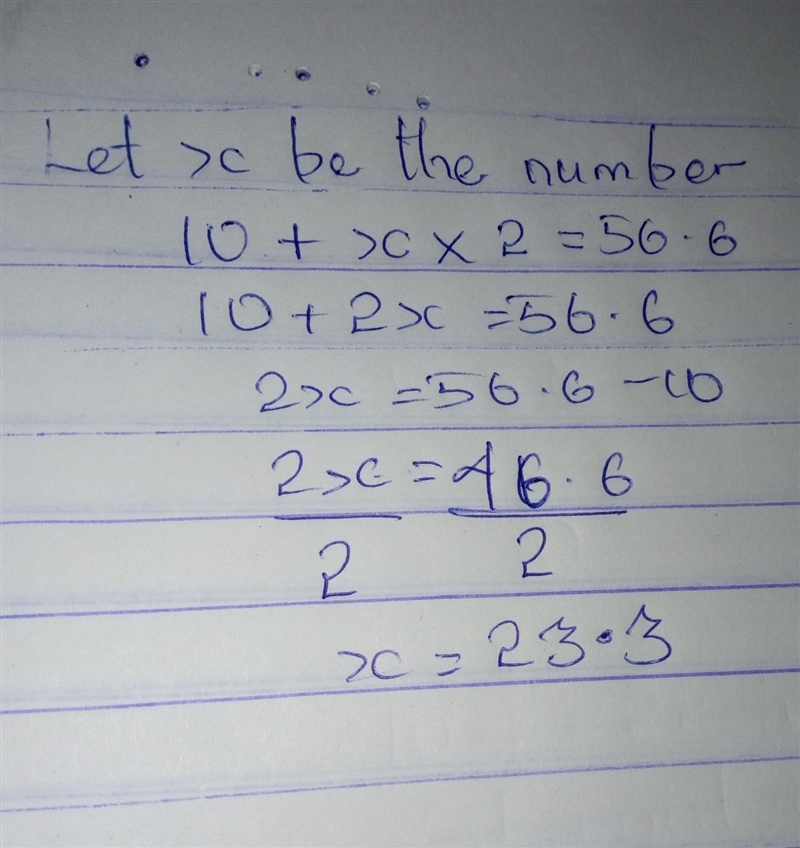 Let x be the number
10 + x × 2 = 56.6
10 + 2x = 56.6
2x = 56.6 - 10
2x = 46.6
2 2
x = 23.3